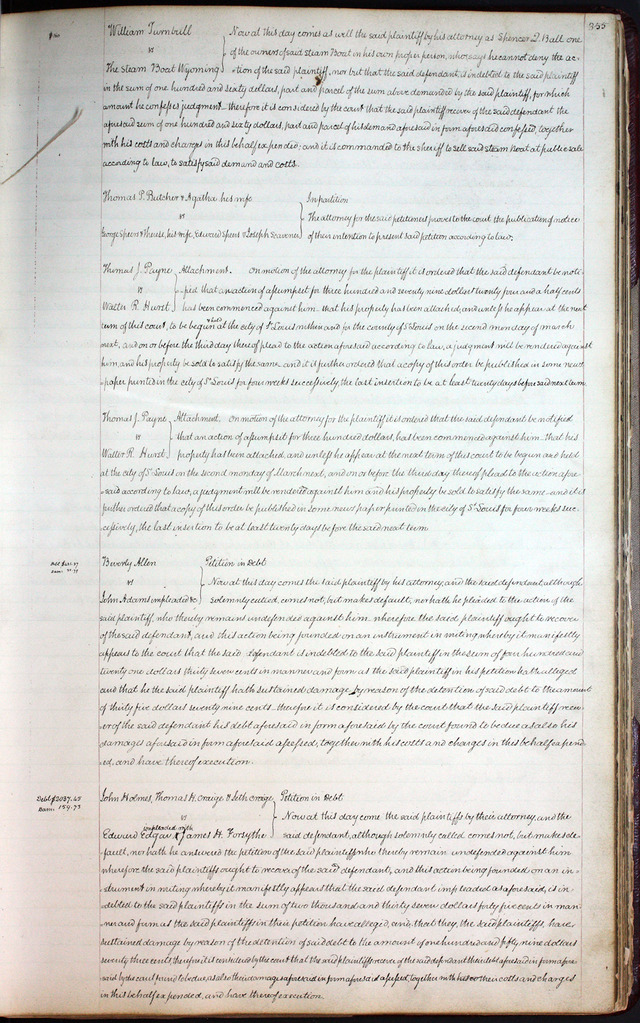 355
William Turnbull
vs
The Steam Boat Wyoming
Now at this day comes as well the said plaintiff by his attorney as Spencer D. Ball one
of the owners of said Steam Boat in his own proper person, who says he cannot deny the ac-
tion of the said plaintiff, nor but that the said defendant, is indebted to the said plaintiff
in the sum of one hundred and sixty dollars, part and parcel of the sum above demanded by the said plaintiff, for which
amount he confesses judgment therefore it is considered by the court that the said plaintiff recover of the said defendant the
aforesaid sum of one hundred and sixty dollars, part and parcel of his demand aforesaid in form aforesaid confessed, together
with his costs and charges in this behalf expended; and it is commanded to the sheriff to sell said steam boat at public sale
according to law, to satisfy said demand and costs.
Thomas P. Butcher & Agatha his wife
vs
George Speers & Therese, his wife, Edward Speers & Joseph
In partition
The attorney for the said petitioners proves to the court the publication of notice
of their intention to present said petition according to law.
Thomas J. Payne
vs
Walter R. Hurst
Attachment. On motion of the attorney for the plaintiff it is ordered that the said defendant be noti-
fied that an action of assumpsit for three hundred and seventy nine dollars twenty four and a half cents
has been commenced against him that his property has been attached, and unless he appear at the next
term of this court, to be begun & held at the city of St Louis within and for the county of St Louis on the second monday of march
next, and on or before the third day thereof plead to the action aforesaid according to law, a judgment will be rendered against
him, and his property be sold to satisfy the same and it is further ordered that a copy of this order be published in some news
paper printed in the city of St Louis for four weeks successively, the last insertion to be at least twenty days before said next term.
Thomas J. Payne
vs
Walter R. Hurst
Attachment. On motion of the attorney for the plaintiff it is ordered that the said defendant be notified
that an action of assumpsit for three hundred dollars, has been commenced against him that his
property has been attached, and unless he appear at the next term of this court to be begun and held
at the city of St Louis on the second monday of March next, and on or before the third day thereof plead to the action afore-
said according to law, a judgment will be rendered against him and his property be sold to satisfy the same and it is
further ordered that a copy of this order be published in some news paper printed in the city of St Louis for four weeks suc-
cessively, the last insertion to be at least twenty days before the said next term
Beverly Allen
vs
John Adams impleaded &c
Petition in Debt
Now at this day comes the said plaintiff by his attorney, and the said defendant, although
solemnly called, comes not, but makes default, nor hath he pleaded to the action of the
said plaintiff, who thereby remains undefended against him wherefore the said plaintiff ought to recover
of the said defendant, and this action being founded on an instrument in writing whereby it manifestly
appears to the court that the said defendant is indebted to the said plaintiff in the sum of four hundred and
twenty one dollars thirty seven cents in manner and form as the said plaintiff in his petition hath alleged
and that he the said plaintiff hath sustained damage by reason of the detention of said debt to the amount
of thirty five dollars seventy nine cents therefore it is considered by the court that the said plaintiff recov-
er of the said defendant his debt aforesaid in form aforesaid by the court found to be due as also his
damages aforesaid in form aforesaid assessed, together with his costs and charges in this behalf expend-
ed, and have thereof execution.
Debt $2037.45
Dam: 159.73
John Holmes, Thomas H. Craige & Seth Craige
vs
Edward Edgar, impleaded with James H. Forsythe
Petition in Debt
Now at this day come the said plaintiffs by their attorney, and the
said defendant, although solemnly called comes not, but makes de-
fault, nor hath he answered the petition of the said plaintiffs who thereby remain undefended against him
wherefore the said plaintiffs ought to recover of the said defendant, and this action being founded on an in-
strument in writing whereby it manifestly appears that the said defendant impleaded as aforesaid, is in-
debted to the said plaintiffs in the sum of two thousand and thirty seven dollars forty five cents in man-
ner and form as the said plaintiffs in their petition have alleged, and that they, the said plaintiffs, have
sustained damage by reason of the detention of said debt to the amount of one hundred and fifty nine dollars
seventy three cents therefore it is considered by the court that the said plaintiffs recover of the said defendant their debt aforesaid in form afore-
said by the court found to be due, as also their damages aforesaid in form aforesaid assessed, together with their costs and charges
in this behalf expended, and have thereof execution.